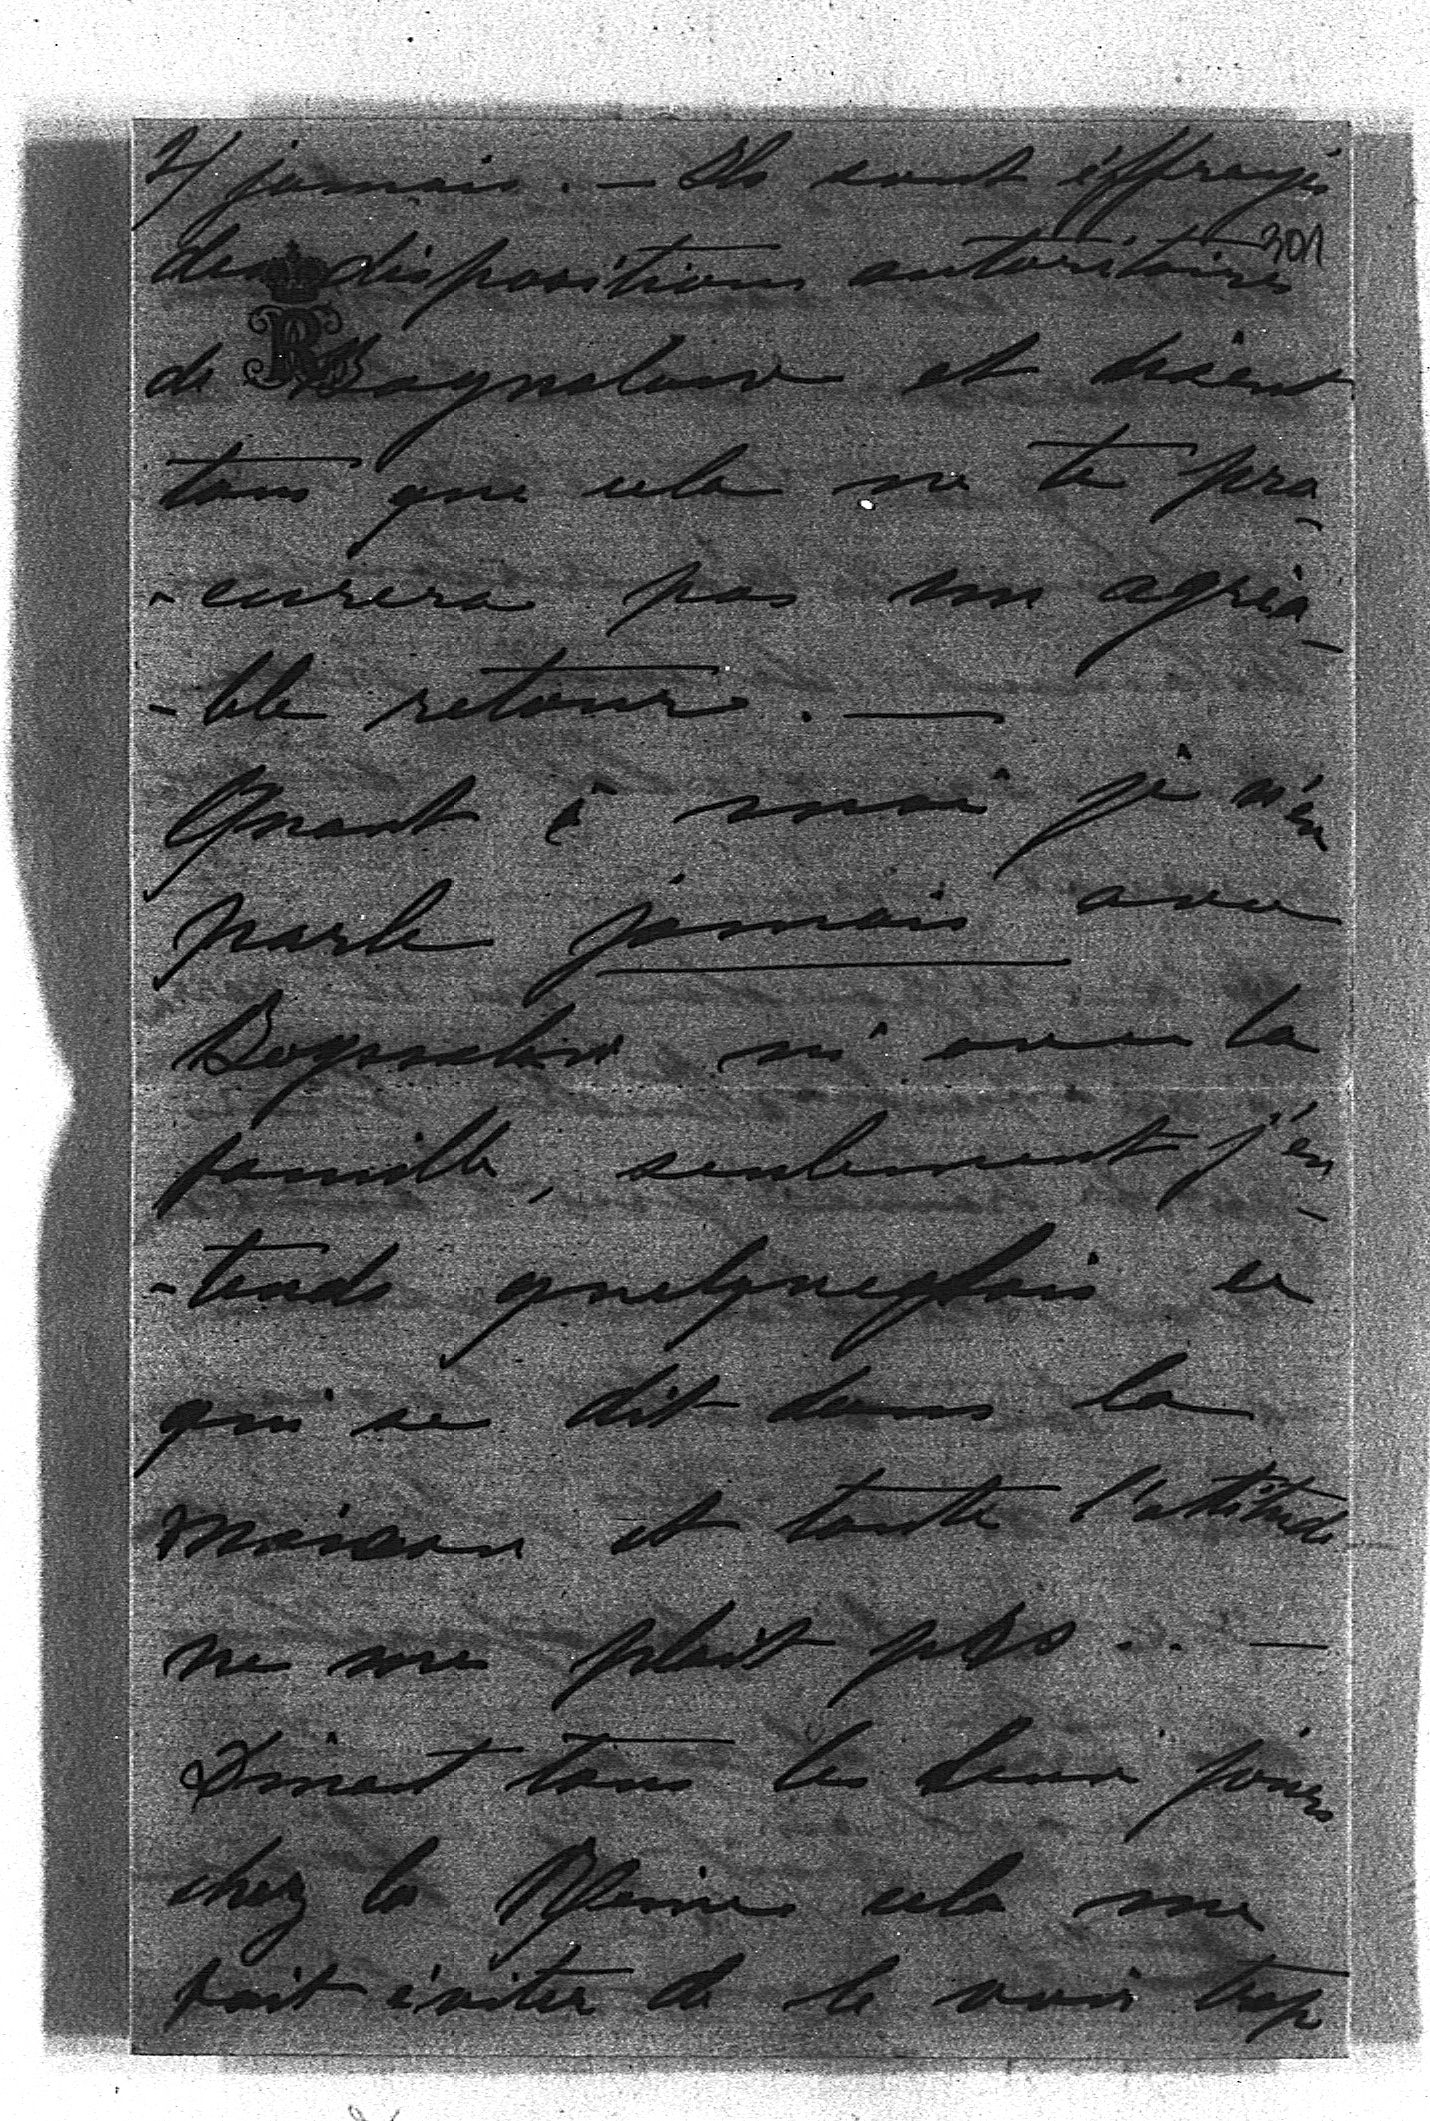 7/ jamais. — Ils sont éffrayés
301
des dispositions autoritaires
R
de Bagueloiro et disent
tous que cela ne te pro-
-curera pas un agréa-
-ble retour. —
Quant à moi je n'en
parle jamais avec
ni avec la
famille, seulement j'en-
-tends quelquefois ce
qui se dit dans la
maison et toute l'attitude
ne me plait pas.. —
Dinant tous les deux jours
chez la Reine cela me
fait éviter de le voir trop